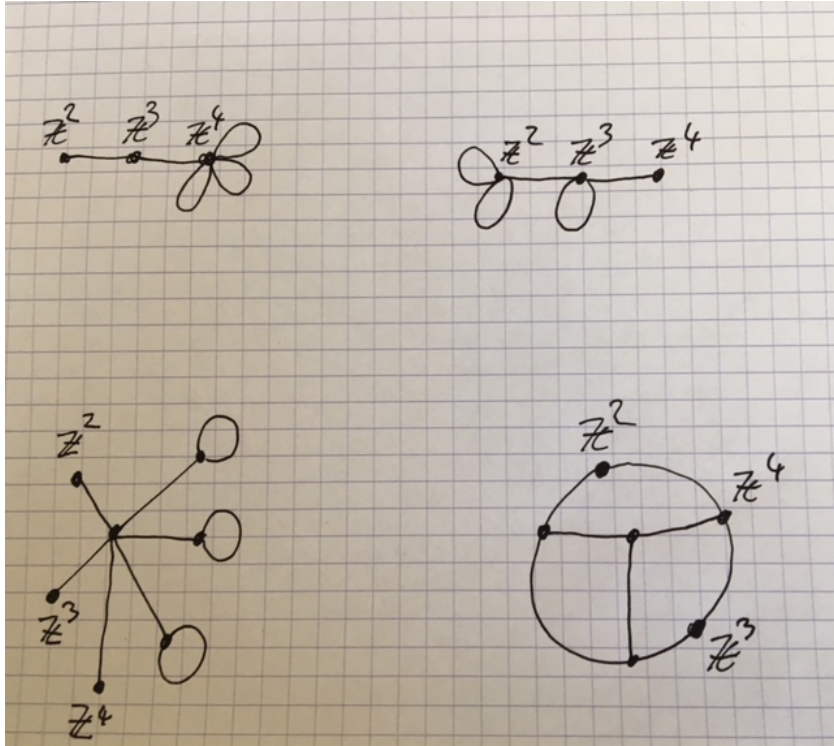 ℤ² ℤ³ ℤ⁴
ℤ² ℤ³ ℤ⁴
ℤ²
ℤ³
ℤ⁴
ℤ²
ℤ⁴
ℤ³